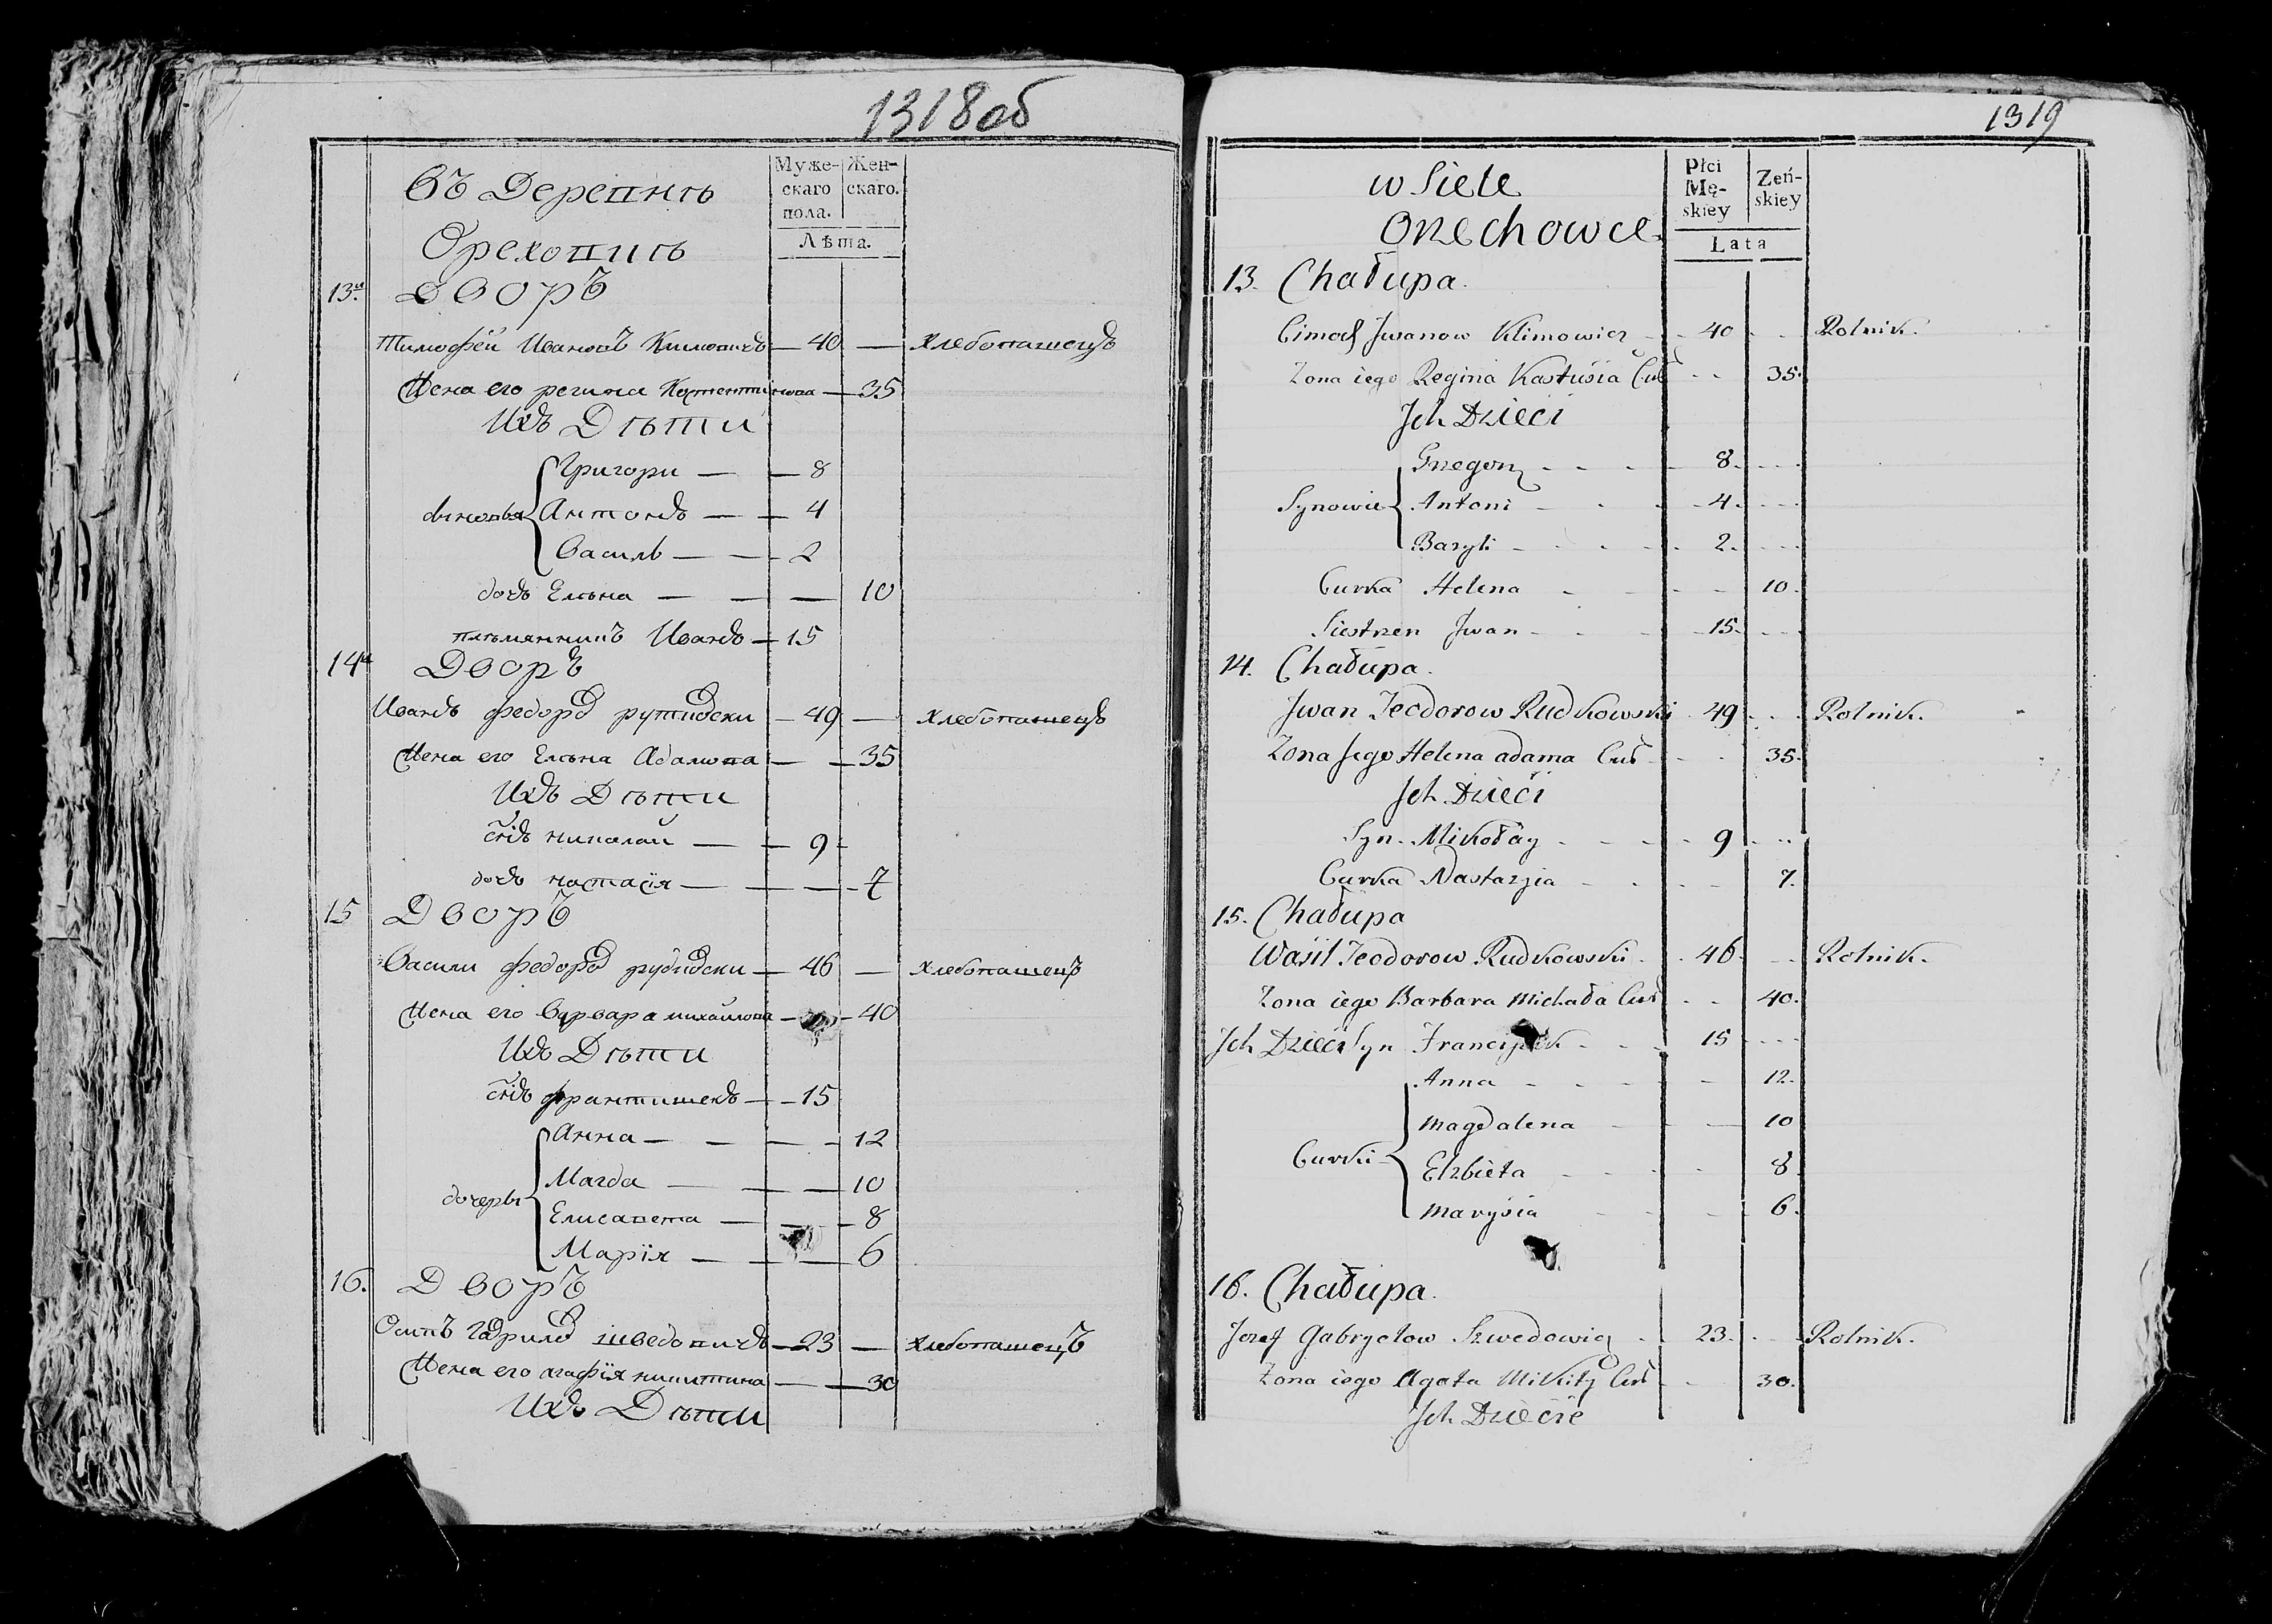 1318об
Въ Деревнѣ
Ореховиѣ
Муже-
скаго
пола.
Жен-
скаго.
Лѣта.
13й Дворъ
Тимофей Ивановъ Климовичъ — 40 — хлебопашецъ
Жена его регина Костентинова — 35
Ихъ Дѣти
Григори — — 8
сыновья Антонъ — — 4
Василь — — 2
дочь Елѣна — — — 10
племянникъ Иванъ — 15
14й Дворъ
Иванъ федоровъ рутковски — 49 — хлебопашецъ
Жена его Елѣна Адамова — — 35
Ихъ Дѣти
сынъ николай — — 9 -
дочь настасїя — — — 7
15 Дворъ
Васили федоровъ рудковски — 46 — хлебопашецъ
Жена его варвара михайлова — — 40
Ихъ Дѣти
сынъ франтишекъ — — 15
Анна — — — — 12
Магда — — — 10
дочеры Елисавета — — — 8
Марїя — — — 6
16. Дворъ
Осипъ гавриловъ шведовичъ — 23 — хлебопашецъ
Жена его агафїя никитина — — 30
Ихъ Дѣти
1319
w Siele
Orzechowce
Płci
Mę-
skiey
Zeń-
skiey
Lata
13. Chałupa.
Cimoch Jwanow Klimowicz - 40 - - Rolnik.
Zona iego Regina Kastusia Cur - - 35.
Jch Dzieci
Grzegorz - - - 8. - - -
Synowie Antoni - - - 4. - - -
Bazyli - - - 2. - - -
Curka Helena - - - - 10.
Siestrzen Jwan - - - 15. - - -
14. Chałupa.
Jwan Teodorow Rudkowski . 49 . . . Rolnik.
Zona Jego Helena adama Cur - - 35.
Jch Dzieci
Syn. Mikołay - - - 9 . . .
Curka Nastazyia - - - - 7.
15. Chałupa
Wasil Teodorow Rudkowski - . 46 - - Rolnik.
Zona iego Barbara Michała Cur - - 40.
Jch Dzieci Syn Franciszek - - - 15 - - -
Anna - - - - - 12.
Magdalena - - - 10
Curki Elzbieta - - - - 8.
Marysia - - - 6.
16. Chałupa.
Jozef Gabryelow Szwedowicz - . 23. - - Rolnik.
Zona iego Agata Mikity Cur - - 30.
Jch Dziecie